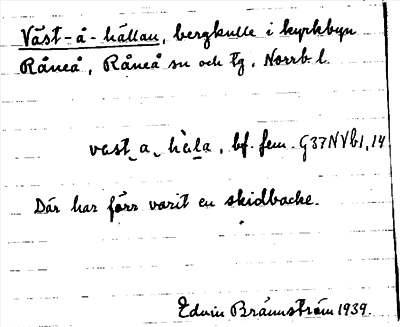 Väst-å-hällan, bergkulle i kyrkbyn
Råneå, Råneå sn och tg, Norrb. l.
vast_a_ häla, bf. fem. G37NVb1,14
Där har förr varit en skidbacke.
Edvin Brännström 1939.